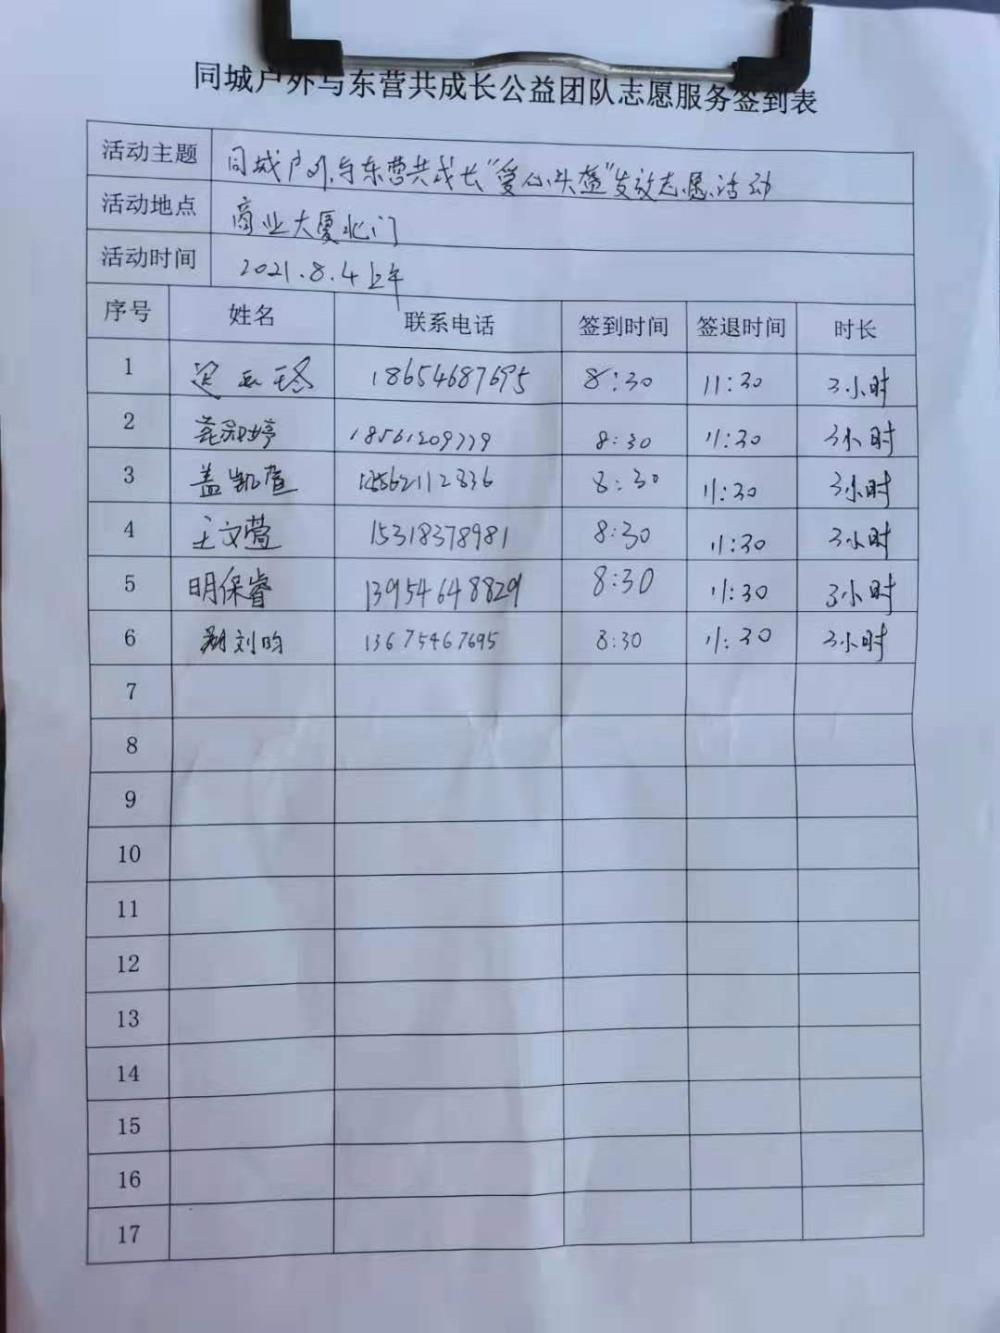 同城户外与东营共成长公益团队志愿服务签到表
活动主题 同城户外与东营共成长"爱心头盔"发放志愿活动
活动地点 商业大厦北门
活动时间 2021.8.4上午
序号 姓名 联系电话 签到时间 签退时间 时长
1 18654687695 8:30 11:30 3小时
2 18561209779 8:30 11:30 3小时
3 盖凯 8:30 11:30 3小时
4 王文萱 15318378981 8:30 11:30 3小时
5 明保睿 13954648829 8:30 11:30 3小时
6 刘昀 13675467695 8:30 11:30 3小时
7
8
9
10
11
12
13
14
15
16
17